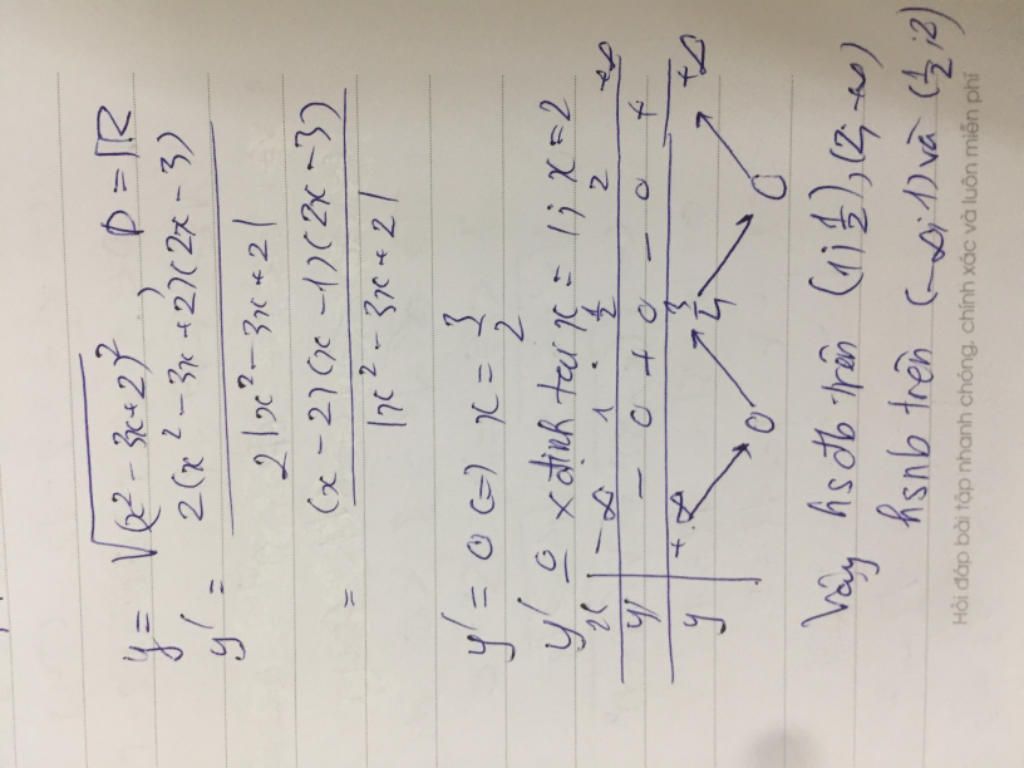 y = √(x² - 3x + 2)² D = ℝ
y' = 2(x² - 3x + 2)'(2x - 3)
2|x² - 3x + 2|
= (x - 2)(x - 1)(2x - 3)
|x² - 3x + 2|
y' = 0 <=> x = 3/2
y' 0 xđịnh tại x = 1; x = 2
x -∞ 1 1/2 2 +∞
y' - 0 + 0 - 0 +
y +∞ 0 3/4 0 +∞
Vậy hsđb trên (1; 1/2), (2; +∞)
hsnb trên (-∞; 1) và (1/2; 2)
Hỏi đáp bài tập nhanh chóng, chính xác và luôn miễn phí